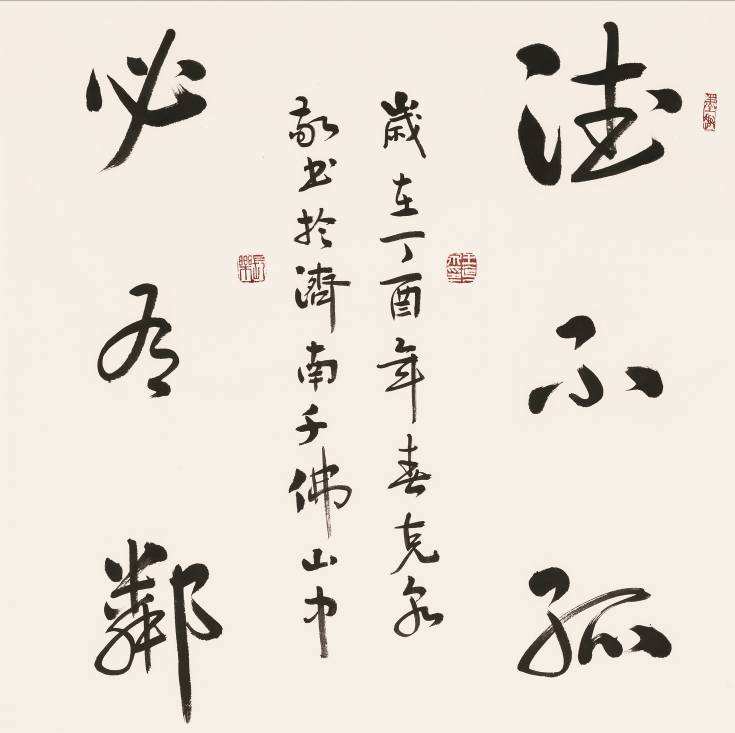 德不孤
必有鄰
歲在丁酉年春克永
敬书於濟南千佛山中